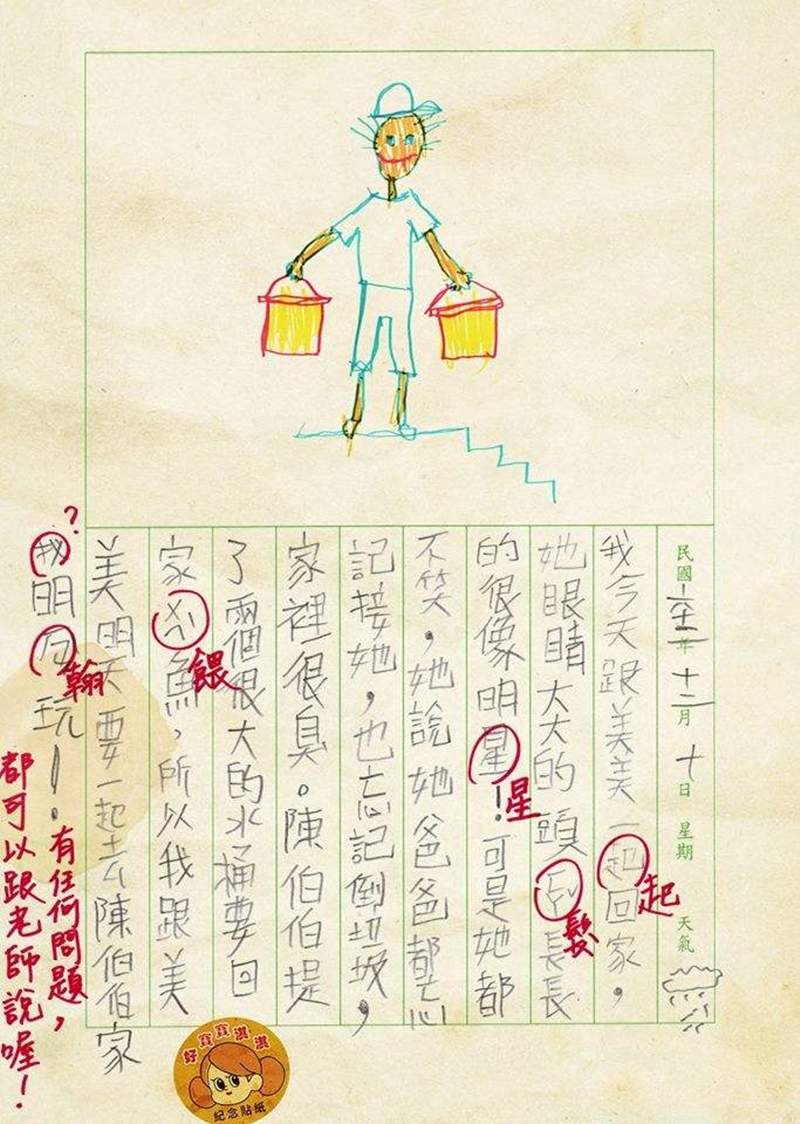 民國六十二年十二月十日 星期 天氣
我今天跟美美一起回家，
起
她眼睛大大的頭長長
髮
的很像明星！可是她都
星
不笑，她說她爸爸都忘
記接她，也忘記倒垃圾，
家裡很臭。陳伯伯提
了兩個很大的水桶要回
家ㄨㄟ魚，所以我跟美
餵
美明天要一起去陳伯伯家
我明玩！。
？
翰
有任何問題，
都可以跟老師說喔！
好寶寶淇淇
紀念貼紙